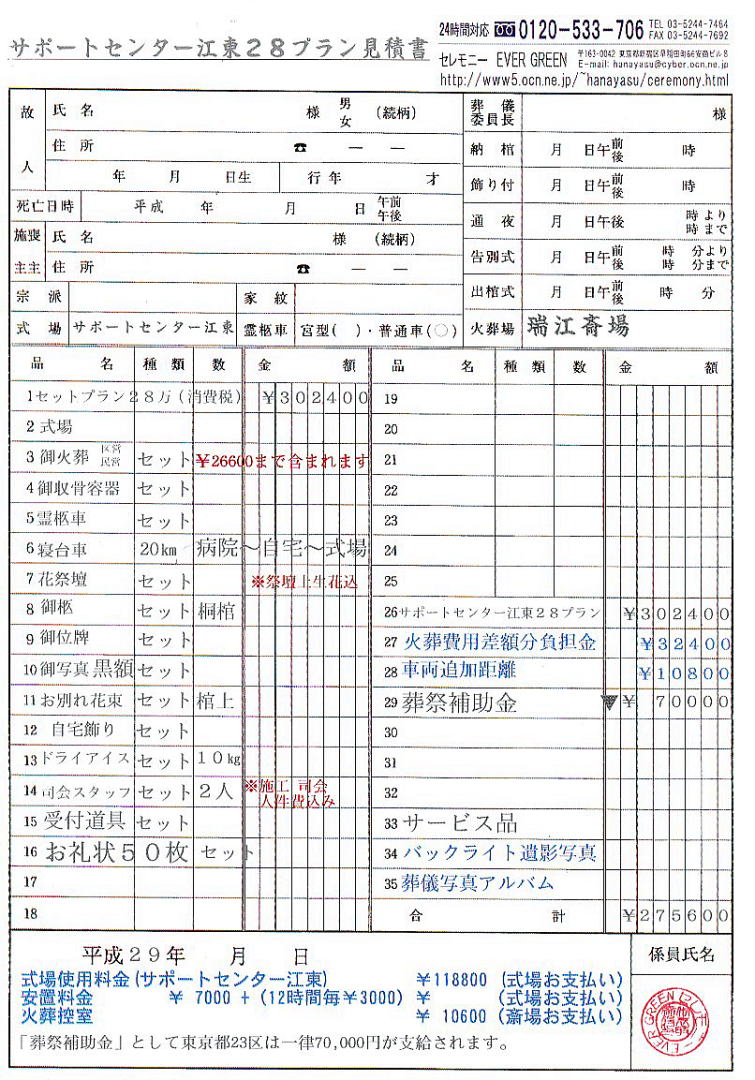 サポートセンター江東28プラン見積書
24時間対応 0120-533-706 TEL 03-5244-7464
FAX 03-5244-7692
セレモニー EVER GREEN 〒163-0042 東京都新宿区早稲田町66安商ビル8
E-mail: hanayasu@cyber.ocn.ne.jp
http://www5.ocn.ne.jp/~hanayasu/ceremony.html
故人 氏名 様 男 女 (続柄)
住所 ☎ ― ―
年 月 日生 行年 才
死亡日時 平成 年 月 日 午前 午後
施主 喪主 氏名 様 (続柄)
住所 ☎ ― ―
宗派 家紋
式場 サポートセンター江東 霊柩車 宮型( )・普通車(○)
葬儀委員長 様
納棺 月 日午前後 時
飾り付 月 日午前後 時
通夜 月 日午後 時より 時まで
告別式 月 日午前後 時 分より 時 分まで
出棺式 月 日午前後 時 分
火葬場 瑞江斎場
品名 種類 数 金額
1 セットプラン28万(消費税) ¥302400
2 式場
3 御火葬 区営 民営 セット ¥26600まで含まれます
4 御収骨容器 セット
5 霊柩車 セット
6 寝台車 20km 病院～自宅～式場
7 花祭壇 セット ※祭壇上生花込
8 御柩 セット 桐棺
9 御位牌 セット
10 御写真 黒額 セット
11 お別れ花束 セット 棺上
12 自宅飾り セット
13 ドライアイス セット 10kg
14 司会スタッフ セット 2人 ※施工 司会
人件費込み
15 受付道具 セット
16 お礼状50枚 セット
17
18
品名 種類 数 金額
19
20
21
22
23
24
25
26 サポートセンター江東28プラン ¥302400
27 火葬費用差額分負担金 ¥32400
28 車両追加距離 ¥10800
29 葬祭補助金 ▼¥ 70000
30
31
32
33 サービス品
34 バックライト遺影写真
35 葬儀写真アルバム
合計 ¥275600
平成29年 月 日
係員氏名
式場使用料金(サポートセンター江東) ¥118800 (式場お支払い)
安置料金 ¥ 7000 + (12時間毎¥3000) ¥ (式場お支払い)
火葬控室 ¥ 10600 (斎場お支払い)
「葬祭補助金」として東京都23区は一律70,000円が支給されます。
EVER GREEN